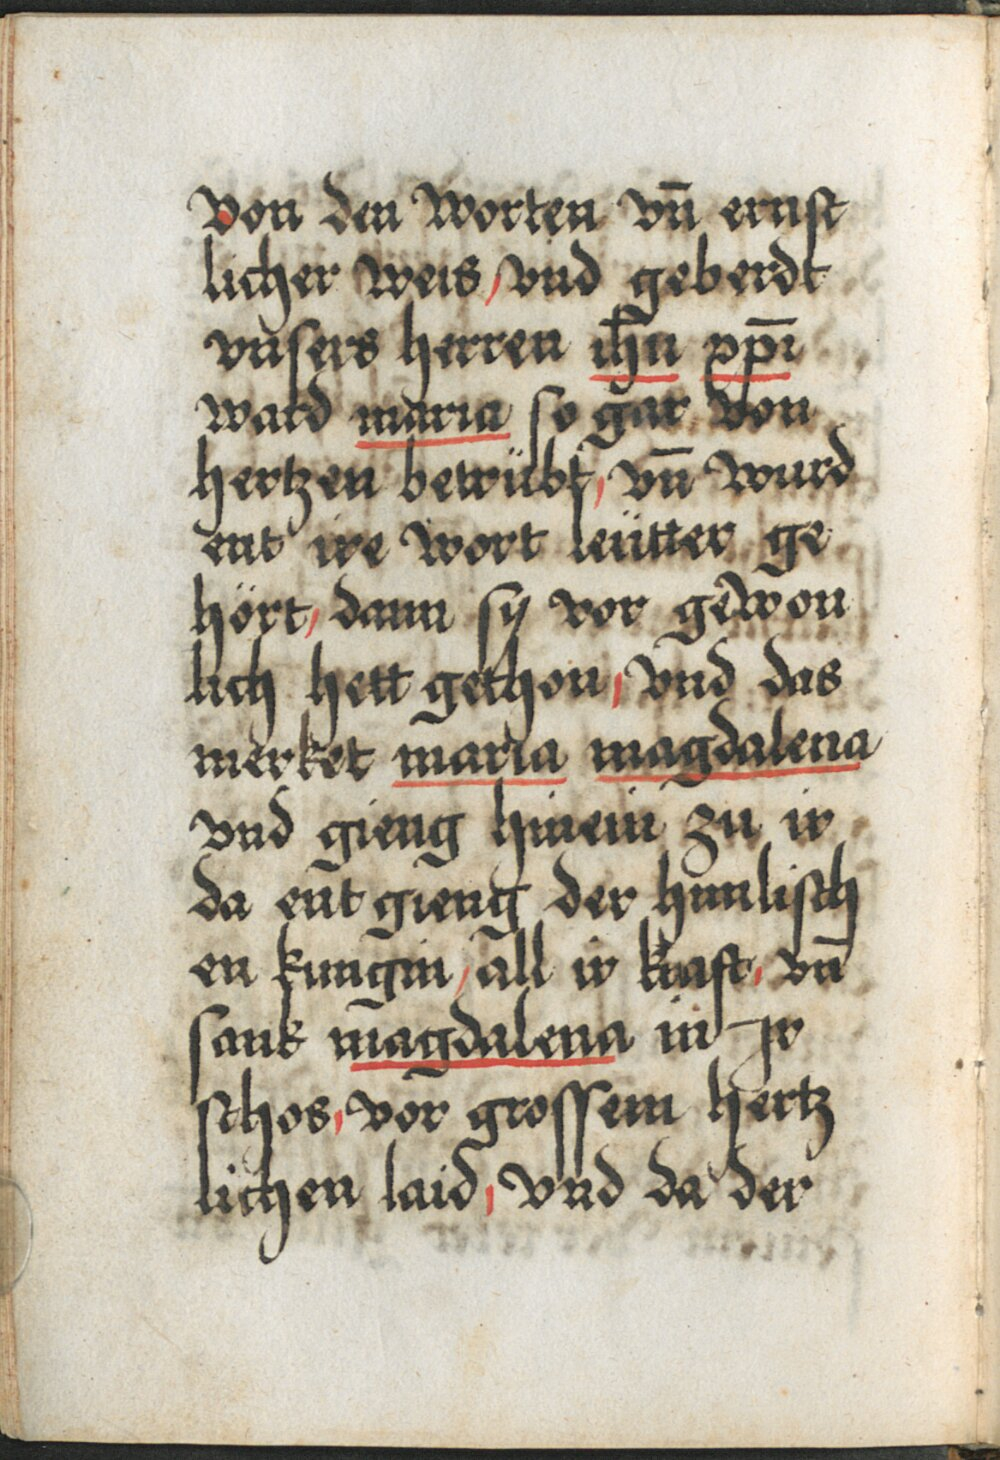 von den worten vn̄ ernst
licher weis / vnd geberdt
vnsers herren ih̄u xp̄i
ward maria so gar von
hertzen betrübt / vn̄ wurd
ent ire wort leütter ge
hört / dann sÿ vor gewon
lich hett gethon / vnd das
merket maria magdalena
vnd gieng hinein zu ir
da entgieng der himlisch
en kungin / all ir kraft / vn̄
sank magdalena in Ir
schos / vor grossem hertz
lichen laid / vnd da der